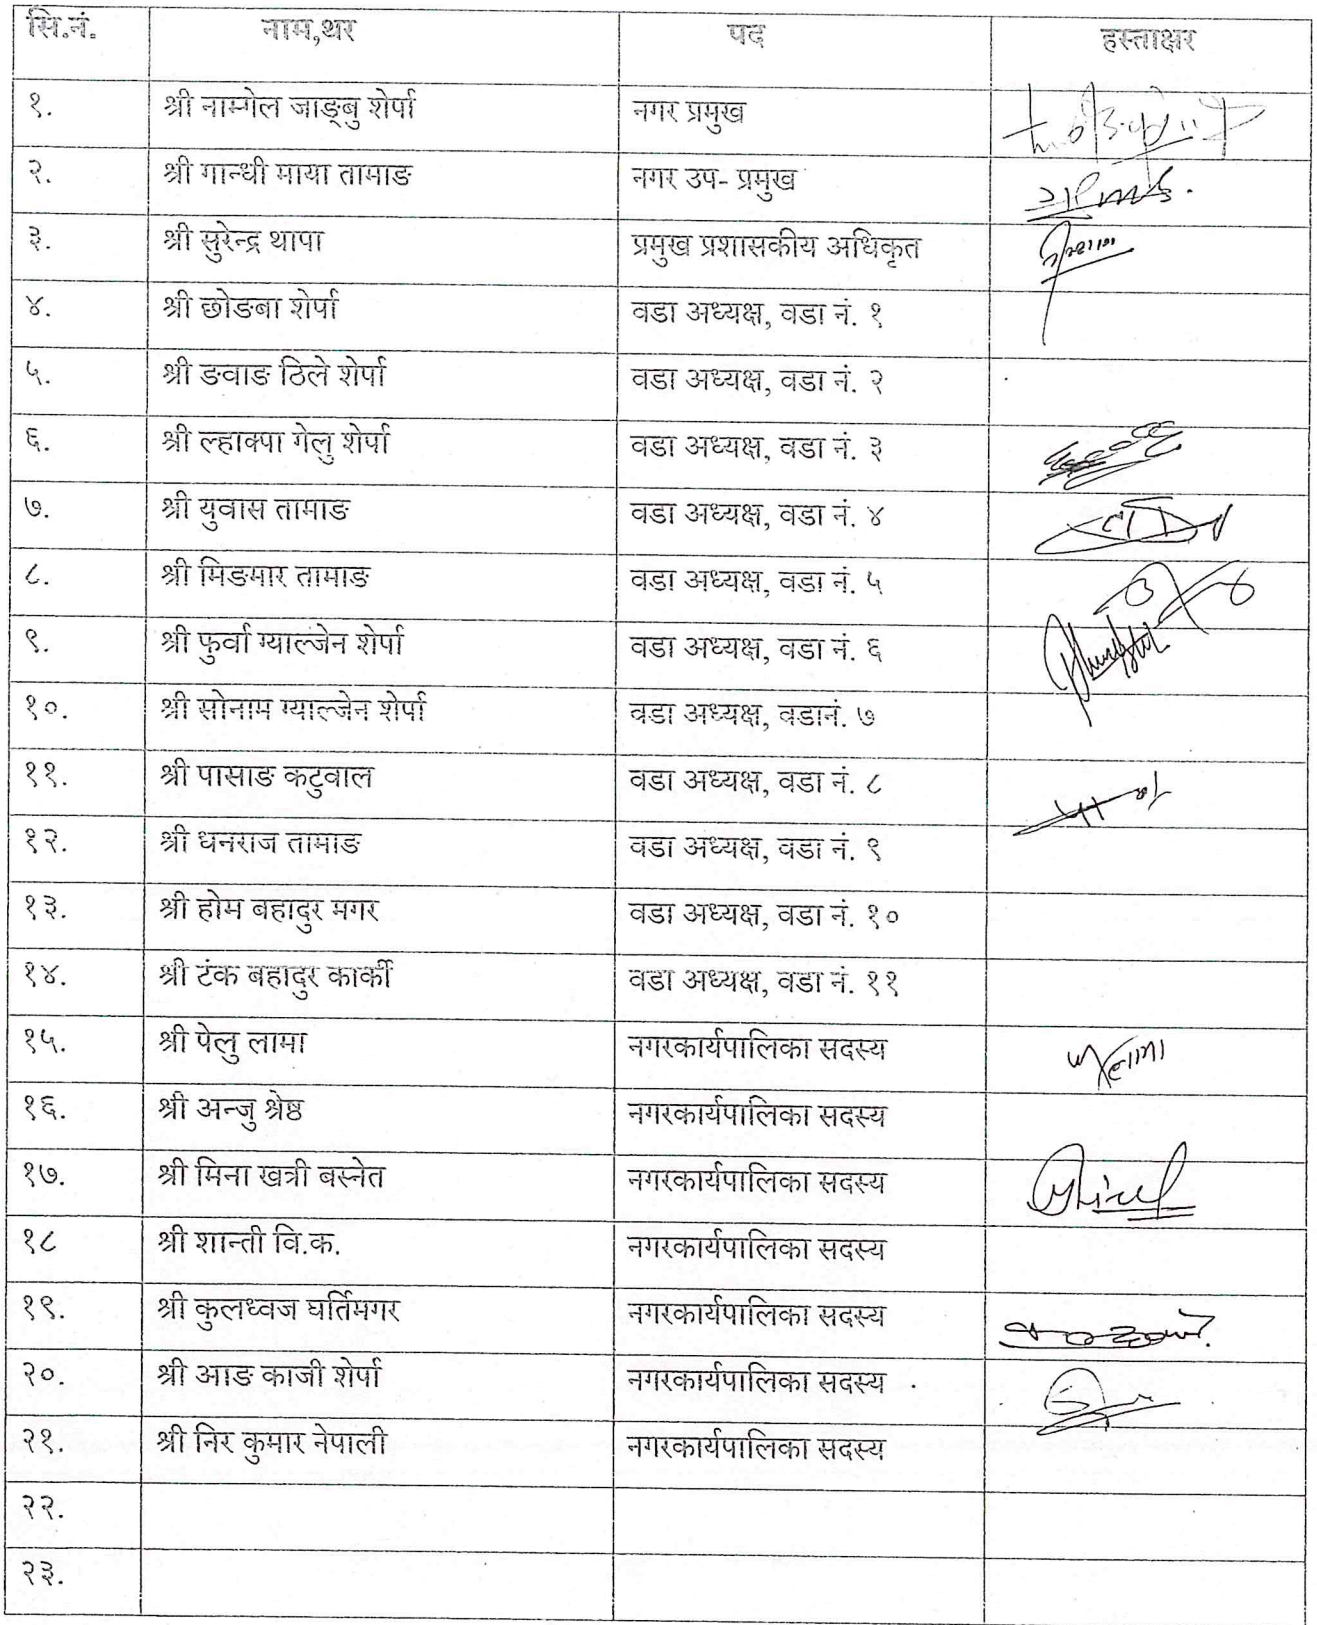 सि.नं. नाम,थर पद हस्ताक्षर
१. श्री नाम्गेल जाङ्बु शेर्पा नगर प्रमुख
२. श्री गान्धी माया तामाङ नगर उप- प्रमुख
३. श्री सुरेन्द्र थापा प्रमुख प्रशासकीय अधिकृत
४. श्री छोङबा शेर्पा वडा अध्यक्ष, वडा नं. १
५. श्री ङवाङ ठिले शेर्पा वडा अध्यक्ष, वडा नं. २
६. श्री ल्हाक्पा गेलु शेर्पा वडा अध्यक्ष, वडा नं. ३
७. श्री युवास तामाङ वडा अध्यक्ष, वडा नं. ४
८. श्री मिङमार तामाङ वडा अध्यक्ष, वडा नं. ५
९. श्री फुर्वा ग्याल्जेन शेर्पा वडा अध्यक्ष, वडा नं. ६
१०. श्री सोनाम ग्याल्जेन शेर्पा वडा अध्यक्ष, वडानं. ७
११. श्री पासाङ कटुवाल वडा अध्यक्ष, वडा नं. ८
१२. श्री धनराज तामाङ वडा अध्यक्ष, वडा नं. ९
१३. श्री होम बहादुर मगर वडा अध्यक्ष, वडा नं. १०
१४. श्री टंक बहादुर कार्की वडा अध्यक्ष, वडा नं. ११
१५. श्री पेलु लामा नगरकार्यपालिका सदस्य
१६. श्री अन्जु श्रेष्ठ नगरकार्यपालिका सदस्य
१७. श्री मिना खत्री बस्नेत नगरकार्यपालिका सदस्य
१८ श्री शान्ती वि.क. नगरकार्यपालिका सदस्य
१९. श्री कुलध्वज घर्तिमगर नगरकार्यपालिका सदस्य
२०. श्री आङ काजी शेर्पा नगरकार्यपालिका सदस्य
२१. श्री निर कुमार नेपाली नगरकार्यपालिका सदस्य
२२.
२३.